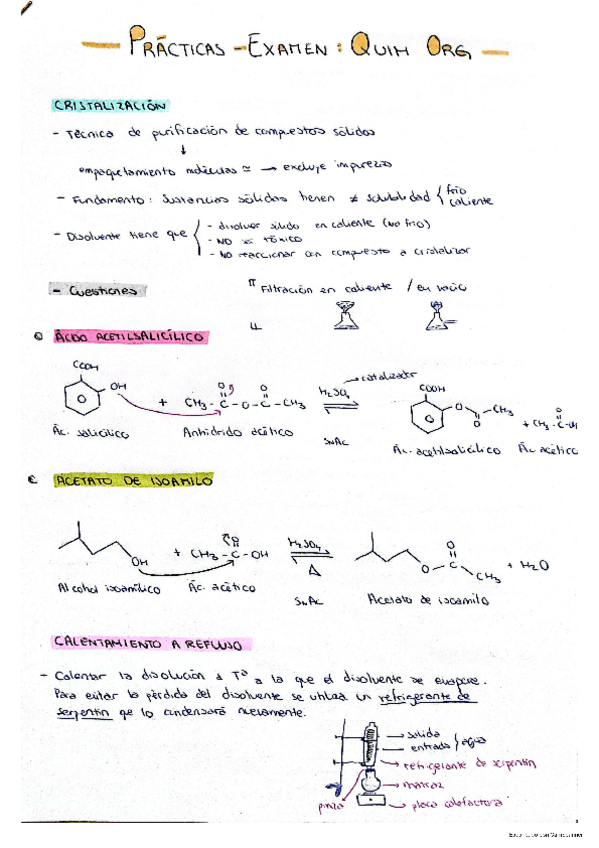 PRÁCTICAS - EXAMEN: QUIM ORG
CRISTALIZACIÓN
- Técnica de purificación de compuestos sólidos
↓
empaquetamiento moléculas ≃ → excluye impurezas
- Fundamento: Sustancias sólidas tienen ≠ solubilidad { frío
caliente
- Disolvente tiene que { - disolver sólido en caliente (no frío)
- NO tóxico
- NO reaccionar con compuesto a cristalizar
- Cuestiones
Filtración en caliente / en vacío
ÁCIDO ACETILSALICÍLICO
COOH
OH
+ CH3 - C - O - C - CH3
O O
H2SO4
→ catalizador
SNAC
COOH
O C CH3
O
+ CH3 - C - OH
O
Ác. salicílico
Anhídrido acético
Ác. acetilsalicílico
Ác acético
ACETATO DE ISOAMILO
OH
+ CH3 - C - OH
O
H2SO4
Δ
SNAC
O
O C CH3
+ H2O
Alcohol isoamílico
Ác. acético
Acetato de isoamilo
CALENTAMIENTO A REFLUJO
- Calentar la disolución a Tª a la que el disolvente se evapore.
Para evitar la pérdida del disolvente se utiliza un refrigerante de
serpentín que lo condensará nuevamente.
→ salida
→ entrada } agua
→ refrigerante de serpentín
→ matraz
pinza
→ placa calefactora